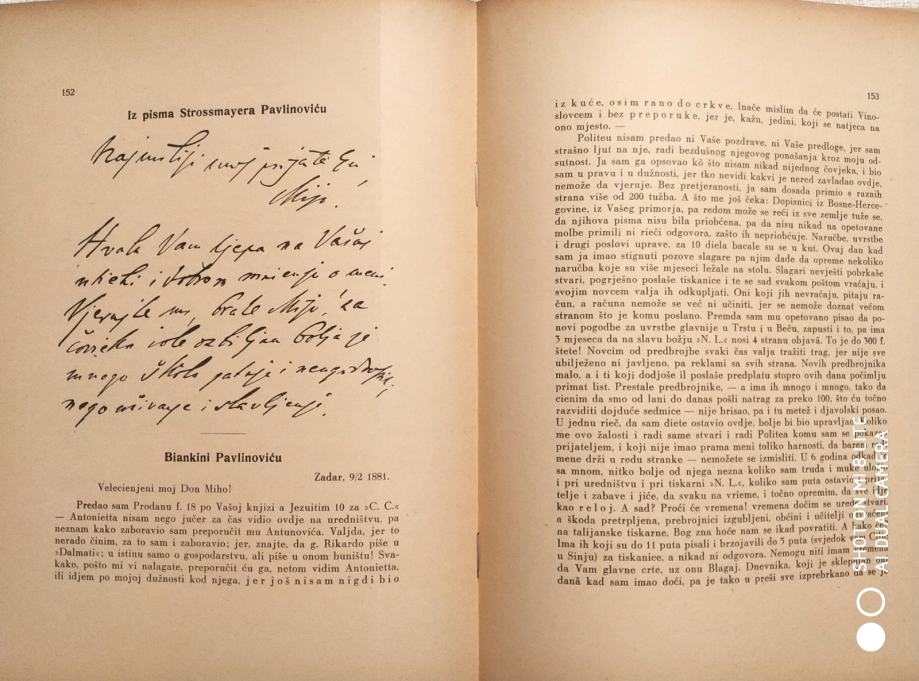 152
Iz pisma Strossmayera Pavlinoviću
Hvala Vam liepa na Vašoj
mnogo škole patnje i neugodnosti,
nego uživanje i slavljenje.
Biankini Pavlinoviću
Zadar, 9/2 1881.
Velecienjeni moj Don Miho!
Predao sam Prodanu f. 18 po Vašoj knjizi a Jezuitim 10 za »C. C.«
— Antonietta nisam nego jučer za čas vidio ovdje na uredništvu, pa
neznam kako zaboravio sam preporučit mu Antunovića. Valjda, jer to
nerado činim, za to sam i zaboravio; jer, znajte, da g. Rikardo piše u
»Dalmati«; u istinu samo o gospodarstvu, ali piše u onom buništu! Sva-
kako, pošto mi vi nalagate, preporučit ću ga, netom vidim Antonietta,
ili idjem po mojoj dužnosti kod njega, jer još nisam nigdi bio
153
iz kuće, osim rano do crkve. Inače mislim da će postati Vino-
slovcem i bez preporuke, jer je, kažu, jedini, koji se natjeca na
ono mjesto. —
Politeu nisam predao ni Vaše pozdrave, ni Vaše predloge, jer sam
strašno ljut na nje, radi bezdušnog njegovog ponašanja kroz moju od-
sutnost. Ja sam ga opsovao kô što nisam nikad nijednog čovjeka, i bio
sam u pravu i u dužnosti, jer tko nevidi kakvi je nered zavladao ovdje,
nemože da vjernje. Bez pretjeranosti, ja sam dosada primio s raznih
strana više od 200 tužba. A što me još čeka: Dopisnici iz Bosne-Herce-
govine, iz Vašeg primorja, pa redom može se reći iz sve zemlje tuže se,
da njihova pisma nisu bila priobćena, pa da nisu nikad na opetovane
molbe primili ni rieči odgovora, zašto ih nepriobćuje. Naručbe, uvrstbe
i drugi poslovi uprave, za 10 diela bacale su se u kut. Ovaj dan kad
sam ja imao stignuti pozove slagare pa njim dade da opreme nekoliko
naručba koje su više mjeseci ležale na stolu. Slagari nevješti pobrkaše
stvari, pogrješno poslaše tiskanice i te se sad svakom poštom vraćaju, i
svojim novcem valja ih odkupljati. Oni koji jih nevraćaju, pitaju ra-
čun, a računa nemože se već ni učiniti, jer se nemože doznat većom
stranom što je komu poslano. Premda sam mu opetovano pisao da po-
novi pogodbe za uvrstbe glavnije u Trstu i u Beču, zapusti i to, pa ima
3 mjeseca da na slavu božju »N. L.« nosi 4 stranu objavâ. To je do 300 f.
štete! Novcim od predbrojbe svaki čas valja tražiti trag, jer nije sve
ubilježeno ni javljeno, pa reklami sa svih strana. Novih predbrojnika
malo, a i ti koji dodjoše il poslaše predplatu stopro ovih dana počimlju
primat list. Prestale predbrojnike, — a ima ih mnogo i mnogo, tako da
cienim da smo od lani do danas pošli natrag za preko 100, što ću točno
razviditi dojduće sedmice — nije brisao, pa i tu metež i djavolski posao.
U jednu rieč, da sam diete ostavio ovdje, bolje bi bio upravljao. Toliko
me ovo žalosti i radi same stvari i radi Politea komu sam se
prijateljem, i koji nije imao prama meni toliko harnosti, da barem
mene drži u redu stranke — nemožete se izmisliti. U 6 godina odkad
sa mnom, nitko bolje od njega nezna koliko sam truda i muke
i pri uredništvu i pri tiskarnici »N. L.«, koliko sam puta ostavio
telje i zabave i jiće, da svaku na vrieme, i točno opremim, da sve ide
kao reloj. A sad? Proći će vremena! vremena dočim se
a škoda pretrpljena, prebrojnici izgubljeni, obćini i učitelji
na talijanske tiskarne, Bog zna hoće nam se ikad povratiti. A
Ima ih koji su do 11 puta pisali i brzojavili do 5 puta (svjedok
u Sinju) za tiskanice, a nikad ni odgovora. Nemogu niti imam
da Vam glavne crte, uz onu Blagaj. Dnevnika, koji je sklepljen
danâ kad sam imao doći, pa je tako u preši sve izprebrkano da se je
SHOT ON MI 8 LITE
AI DUAL CAMERA